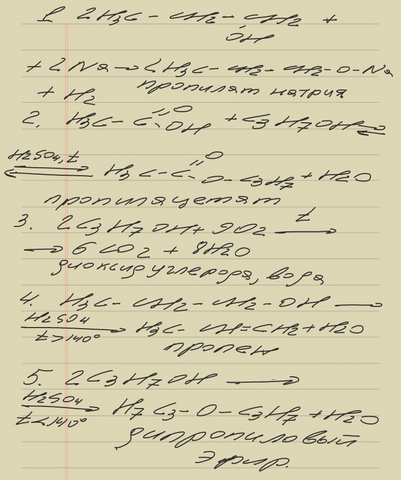 1. 2H3C - CH2 - CH2 +
OH
+ 2Na → 2H3C - CH2 - CH2 - O - Na
+ H2 пропилят натрия
2. H3C - C =O OH + C3H7OH ⇌
H2SO4, t ⇌ H3C - C =O O - C3H7 + H2O
пропилацетат
3. 2C3H7OH + 9O2 t →
→ 6CO2 + 8H2O
диоксид углерода, вода
4. H3C - CH2 - CH2 - OH →
H2SO4 t>140° → H3C - CH=CH2 + H2O
пропен
5. 2C3H7OH →
H2SO4 t<140° → H7C3 - O - C3H7 + H2O
дипропиловый
эфир.